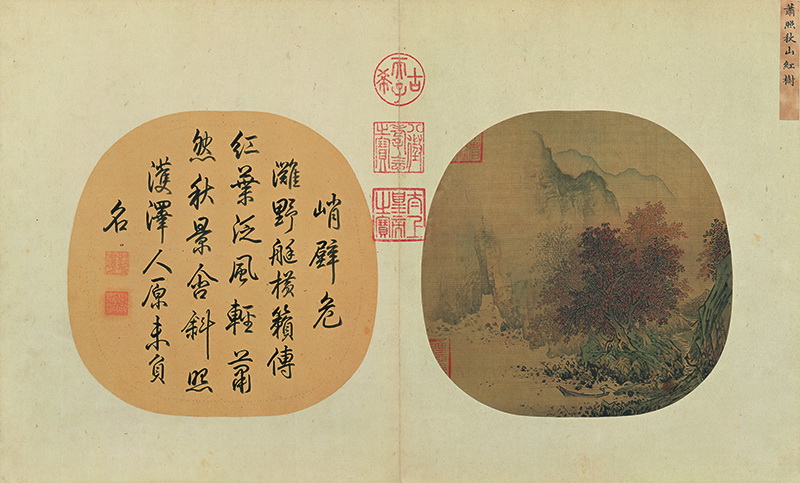 蕭照秋山紅樹
古稀天子
八徵耄念之寶
太上皇帝之寶
峭壁危
灘野艇橫籟傳
紅葉泛風輕蕭
然秋景含斜照
濩澤人原未負
名